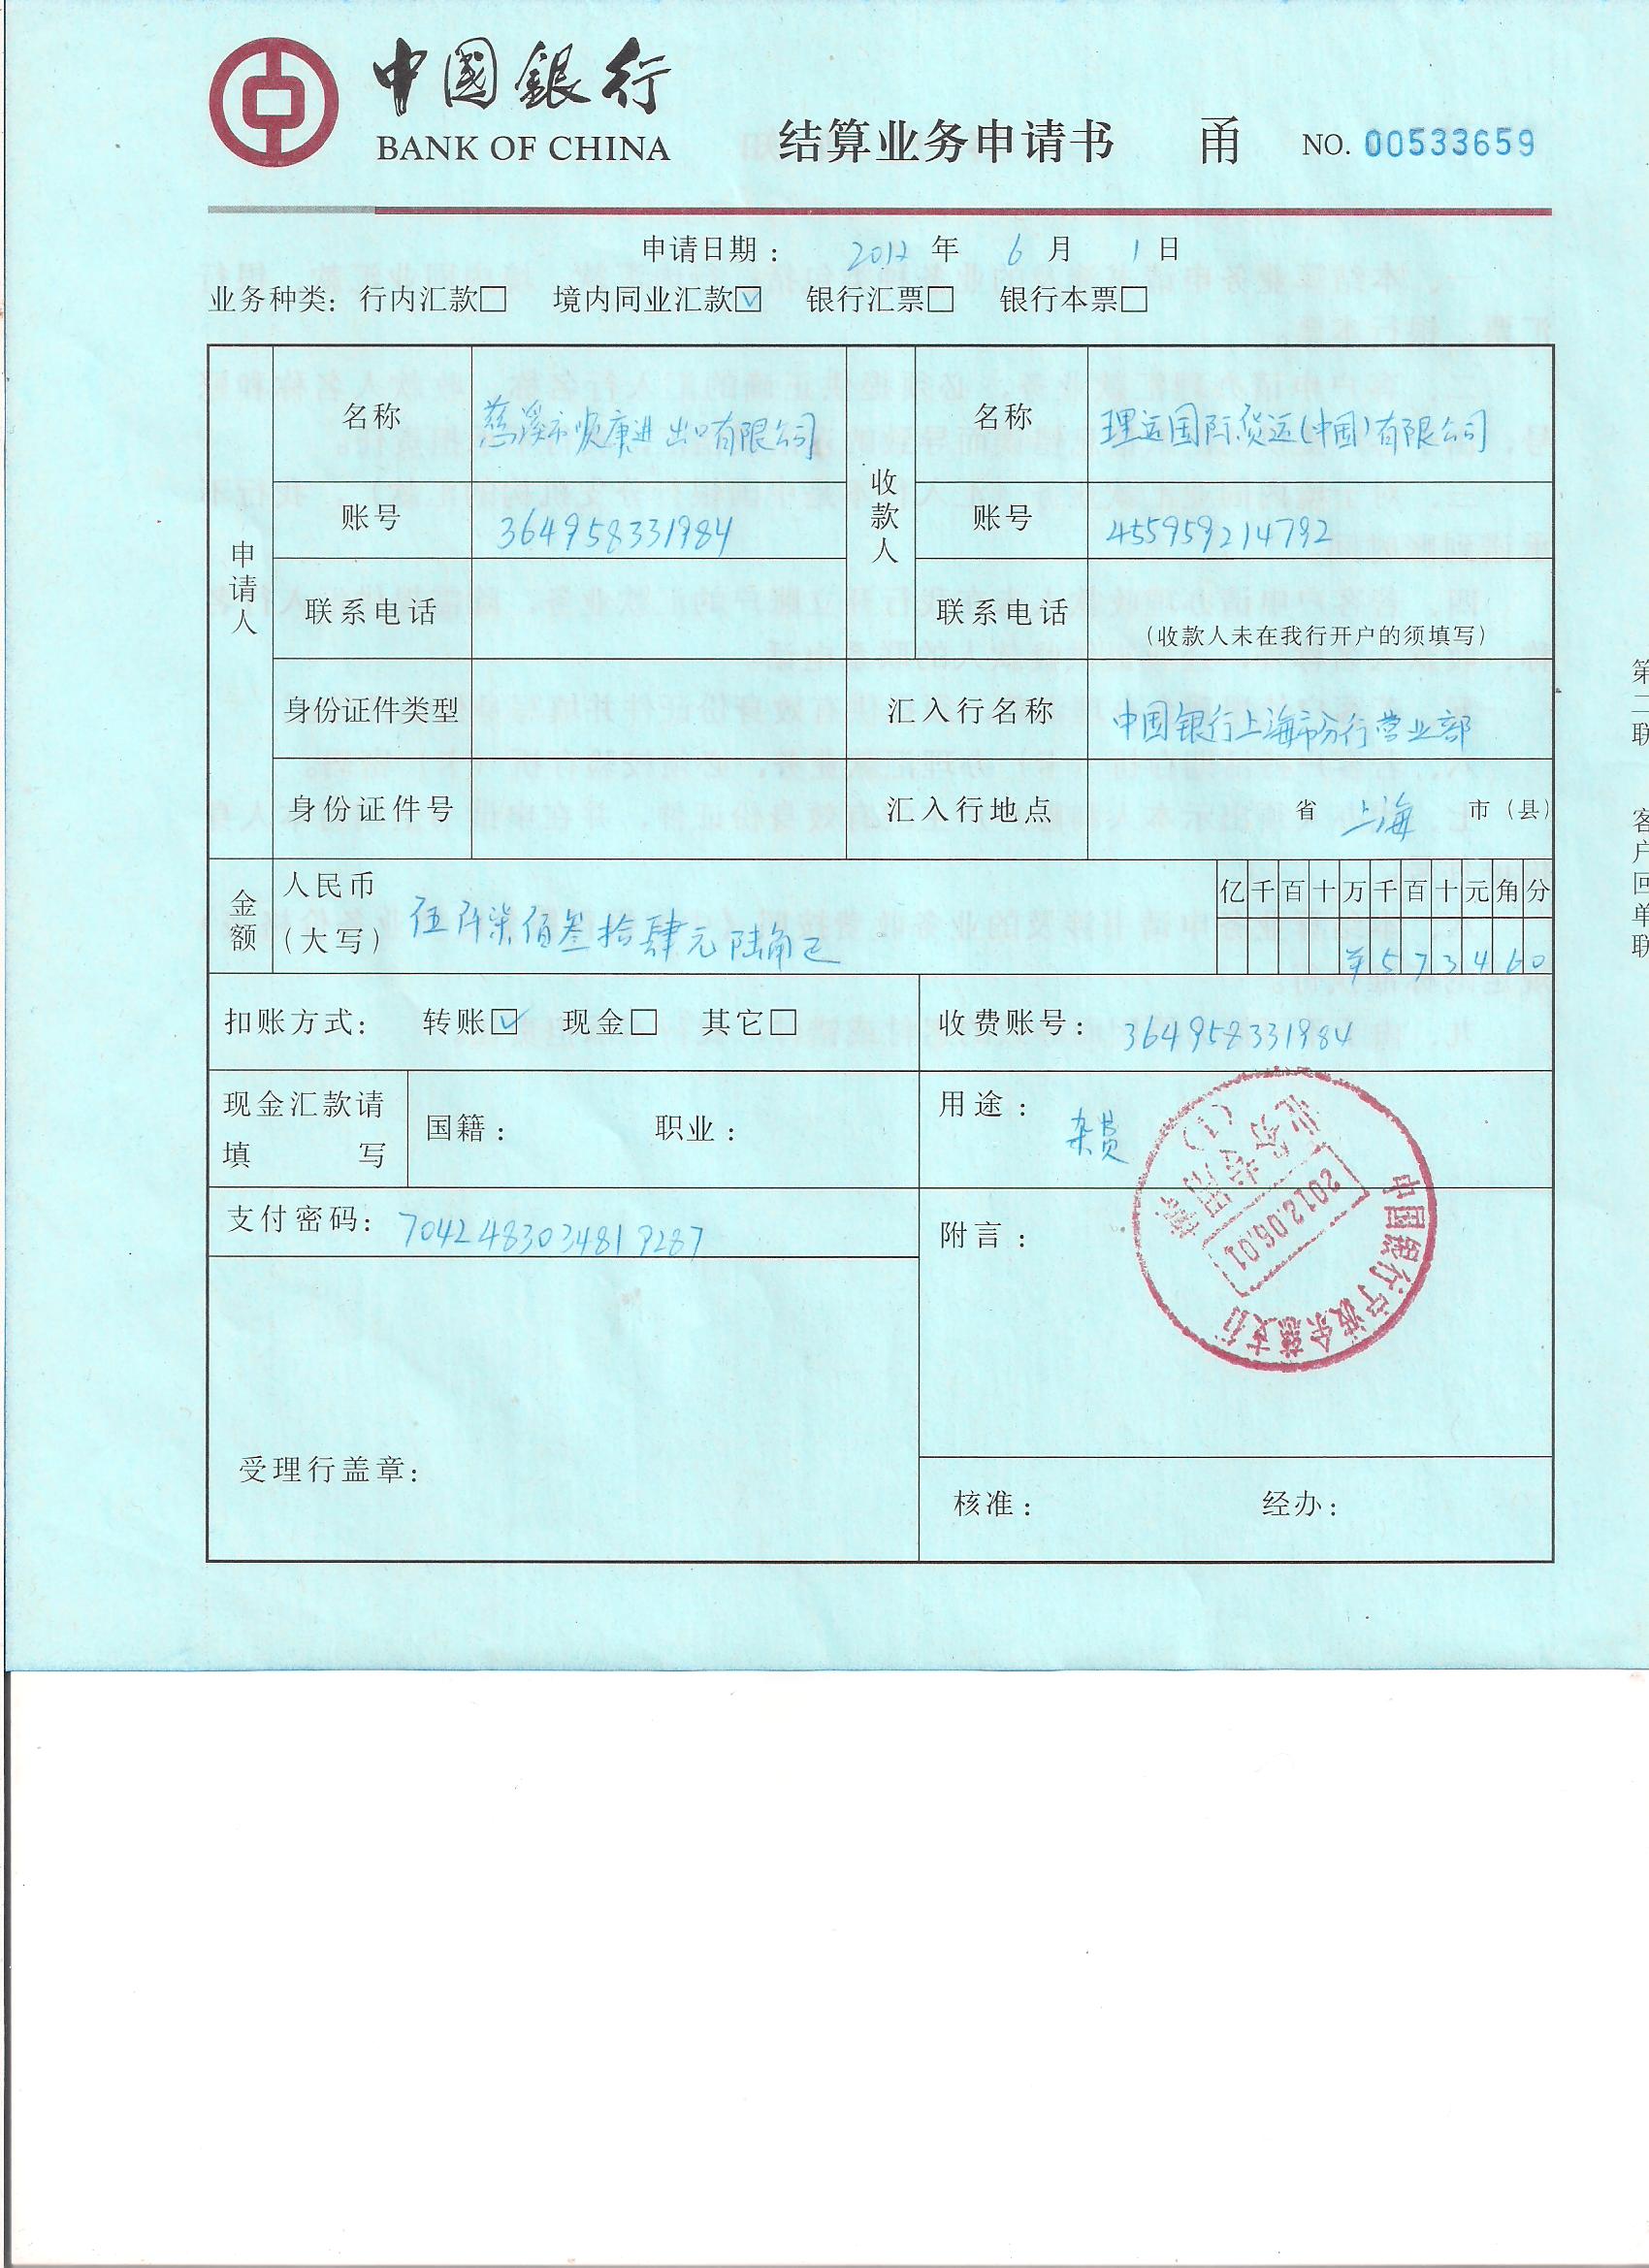 中國銀行
BANK OF CHINA
结算业务申请书 甬 NO. 00533659
申请日期: 2012 年 6 月 1 日
业务种类: 行内汇款□ 境内同业汇款☑ 银行汇票□ 银行本票□
申请人
名称 慈溪市顺康进出口有限公司
收款人
名称 理运国际货运(中国)有限公司
账号 364958331984
账号 455959214792
联系电话
联系电话 (收款人未在我行开户的须填写)
身份证件类型
汇入行名称 中国银行上海市分行营业部
身份证件号
汇入行地点 省 上海 市(县)
金额 人民币(大写) 伍仟柒佰叁拾肆元陆角正
亿千百十万千百十元角分
¥573460
扣账方式: 转账☑ 现金□ 其它□
收费账号: 364958331984
现金汇款请填写
国籍: 职业:
用途: 杂费
支付密码: 7042483034819287
附言:
中国银行宁波余慈支行
2012.06.01
业务专用章
(1)
受理行盖章:
核准: 经办:
第二联 客户回单联